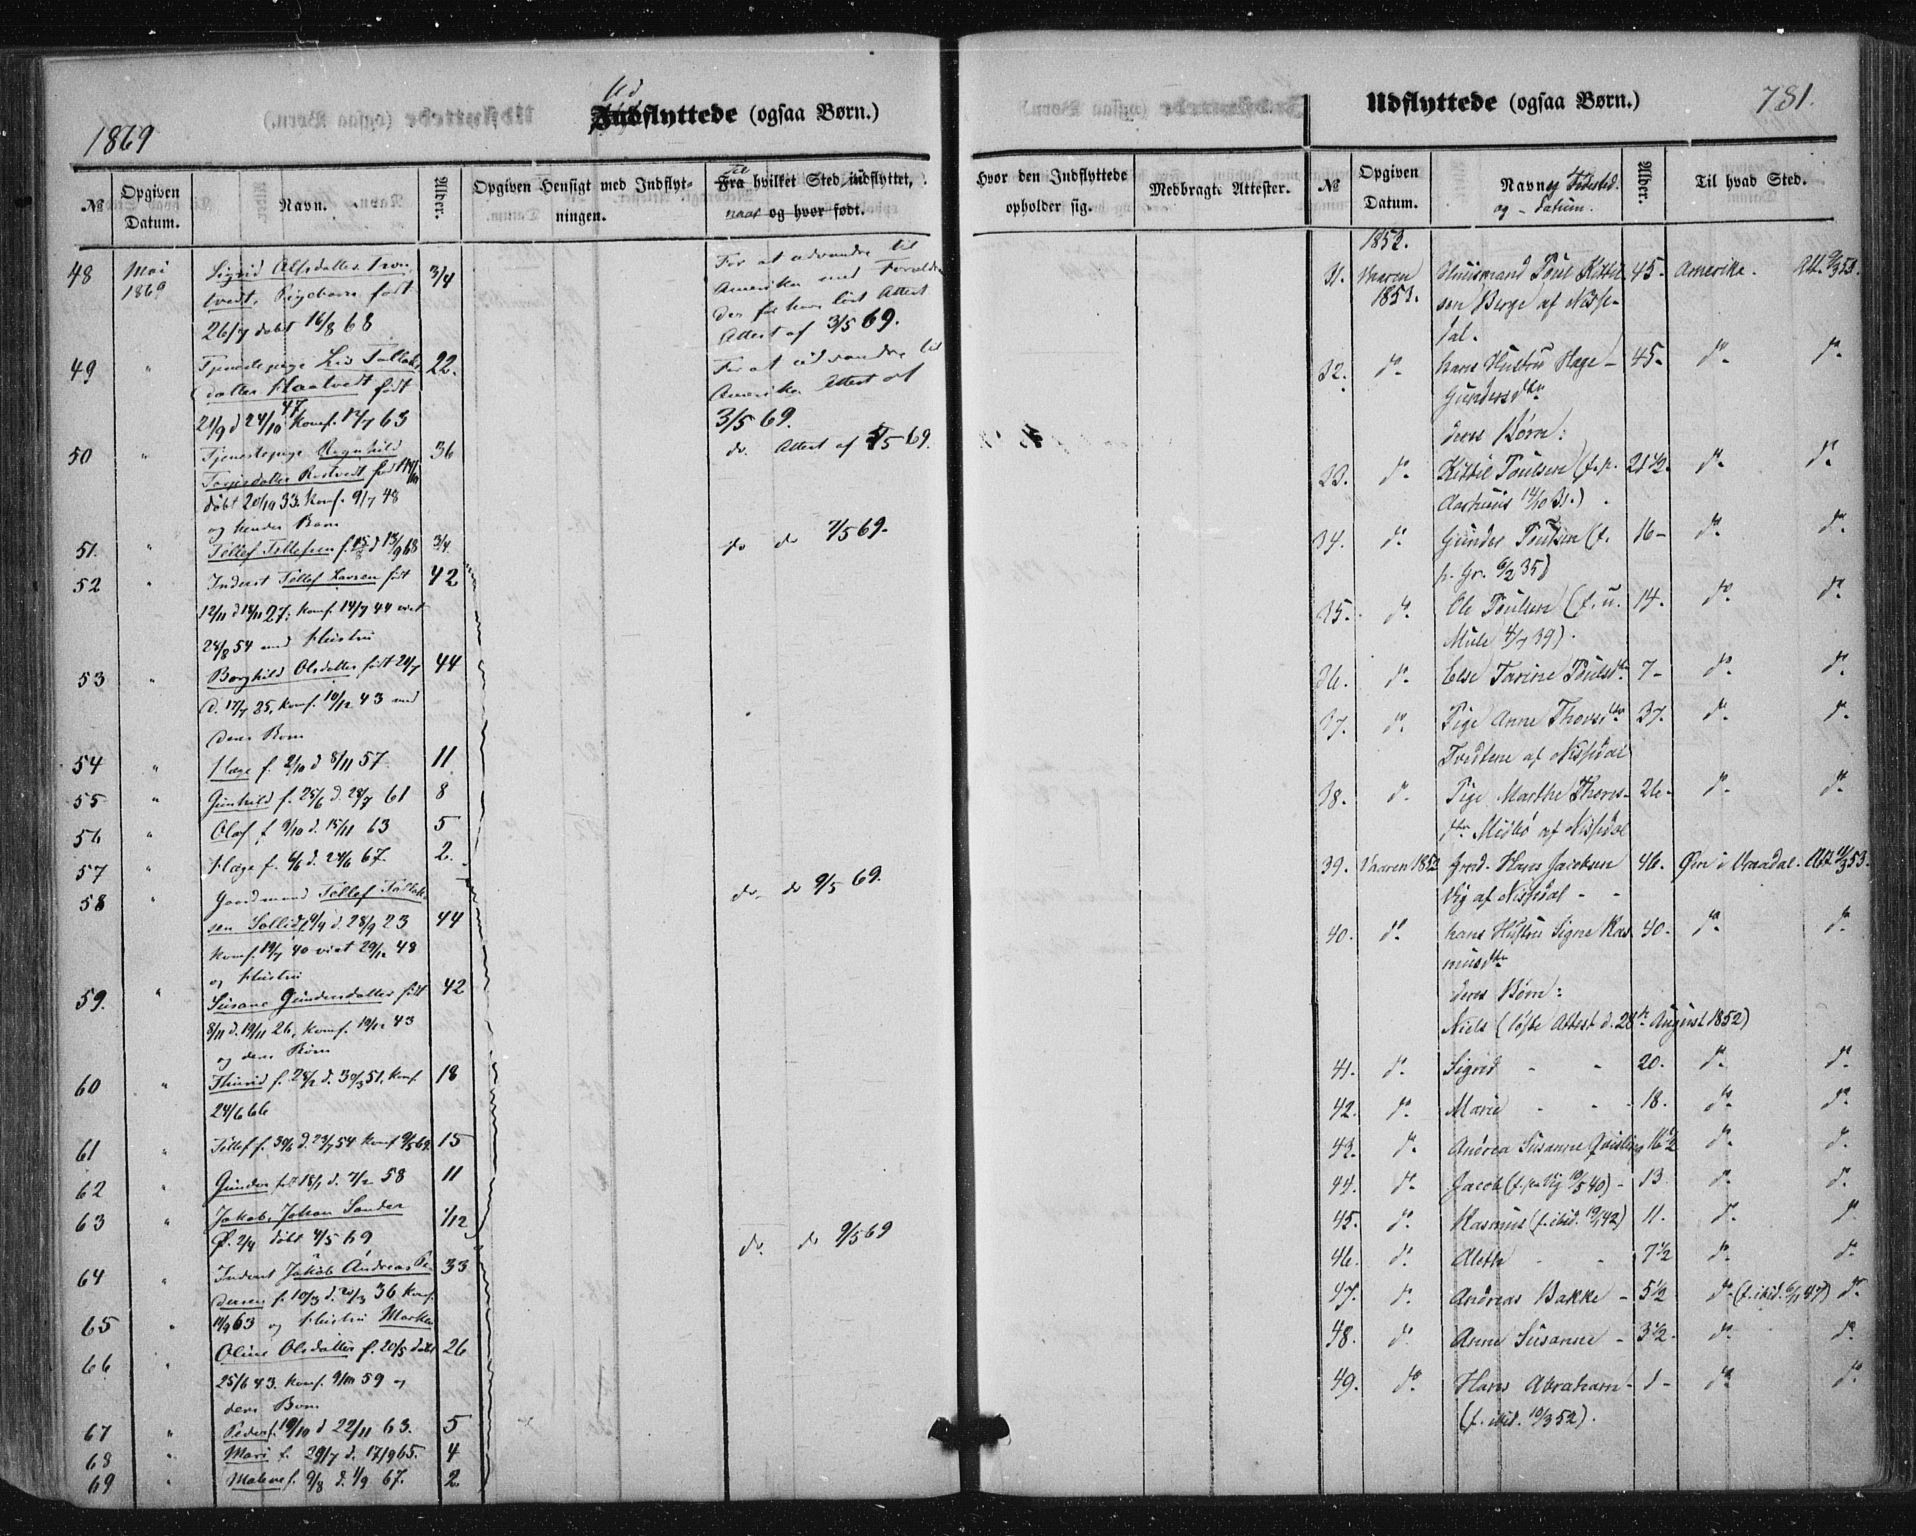 1869
Ud
Indflyttede (ogsaa Børn.)
№
Opgiven Datum.
Navn.
Alder.
Opgiven Hensigt med Indflytningen.
Til
Fra hvilket Sted indflyttet,
naar og hvor født.
48 Mai Sigrid Alfsdatter 3/4 For at udvandre til
1869 tvedt, Pigebarn født Amerika med Forældre
26/7 døbt 16/8 68 der før have løst Attest
Attest af 3/5 69.
49 " Tjenestepige Liv Tallaks- 22. For at udvandre til
datter Flaatvedt født Amerika Attest af
21/9 d 24/10 47 Konf. 17/7 63 3/5 69.
50 " Tjenestepige Ragnhild 36 do. Attest af 7/5 69.
datter født
døbt 20/10 33. Konf. 9/7 48
og hendes Barn
51. " Tollef Tollefsen f. d 13/9 68 3/4 do do 7/5 69.
52 " Inderst Tollef Larsen født 42
12/11 d 18/11 27. Konf. 14/7 44 viet
24/8 54 med Hustru
53 " Borghild Olsdatter født 44
d. 17/7 25, Konf. 10/12 43 med
deres Børn
54 " Hæge f. 2/10 d 8/11 57. 11
55 " Gunhild f. 25/6 d. 28/7 61 8
56 " Olaf f. 9/10 d. 15/11 63 5
57 " Hæge f. 6/6 d. 24/6 67. 2.
58 " Gaardmand Tollef Tallak- do do 9/5 69.
sen Sollid d. 28/9 23 44
Konf. 19/7 40 viet 29/12 48
og Hustru
59. " Susane Gundersdatter født 42
8/11 d. 19/11 26, Konf. 10/12 43
og deres Børn
60 " Thurid f. 28/2 d. 30/3 51, Konf. 18
24/6 66
61 " Tollef f. 30/6 d. 23/7 54 Konf 9/5 69. 15
62 " Gunder født 18/1 d. 7/2 58 11
63 " Jakob Johan Sander 1/12
f. 2/4 døbt 4/5 69 do. do 9/5 69
64 " Inderst Jakob Andreas Pe- 33
dersen f. 10/3 d. 20/3 36 Konf.
65 " 63 og Hustru
66 " Oline Olsdatter f. 20/5 døbt 26
25/6 43. Konf. 59 og
deres Børn
67 " Peder f. 19/10 d 22/11 63. 5
68 " Mari f. 29/7 d. 17/9 65. 4
69 " Malene f. 9/8 d. 1/9 67. 2
Hvor den Indflyttede opholder sig.
Medbragte Attester.
Udflyttede (ogsaa Børn.)
781.
№
Opgiven Datum.
Navn og Fødested
og - datum.
Alder.
Til hvad Sted.
1853.
31. Vaaren Huusmand Poul Kittil- 45. Amerika. Att. 9/3 53.
1853. sen Berge af Nisse-
dal.
32. do. hans Hustru Hæge 45. do do.
Gundersdtr.
deres Børn:
33. do. Kittil Poulsen (f. p. 21 1/2. do. do.
Aashuus 14/10 31.)
34. do. Gunder Poulsen (f. 16 do. do.
p. Gr. 6/2 35)
35. do. Ole Poulsen (f. u. 14. do. do.
Mule 4/7 39).
36. do. Else Tarine Poulsdtr. 7 do. do.
37. do. Pige Anne Thorsdtr 37. do. do.
Tveitene af Nissedal
38. do. Pige Marthe Thors- 26. do. do.
dtr Midbø af Nissedal
39. Vaaren 1852 Grd. Hans Jacobsen 46. Øien i Vraadal. Att 11/3 53.
Vig af Nissedal - -
40. do. hans Hustru Signe Ras- 40. do. do.
musdtr
deres Børn:
Niels (løste Attest d. 28de August 1852)
41. do. Sigrid - - 20. do. do.
42. do. Marie - - 18. do. do.
43. do. Andrea Susanne Qvisling 16 1/2 do. do.
44. do. Jacob (f. paa Vig 10/5 40) 13 do. do.
45. do. Rasmus (f. ibid. 42) 11. do. do.
46. do. Aleth - - 7 1/2 do. do.
47. do. Andreas Bakke 5 1/2 do. (f. ibid. 47) do.
48. do. Anne Susanne 3 1/2. do. do.
49. do. Hans Abraham 1 do. do.
(f. ibid. 19/3 52).